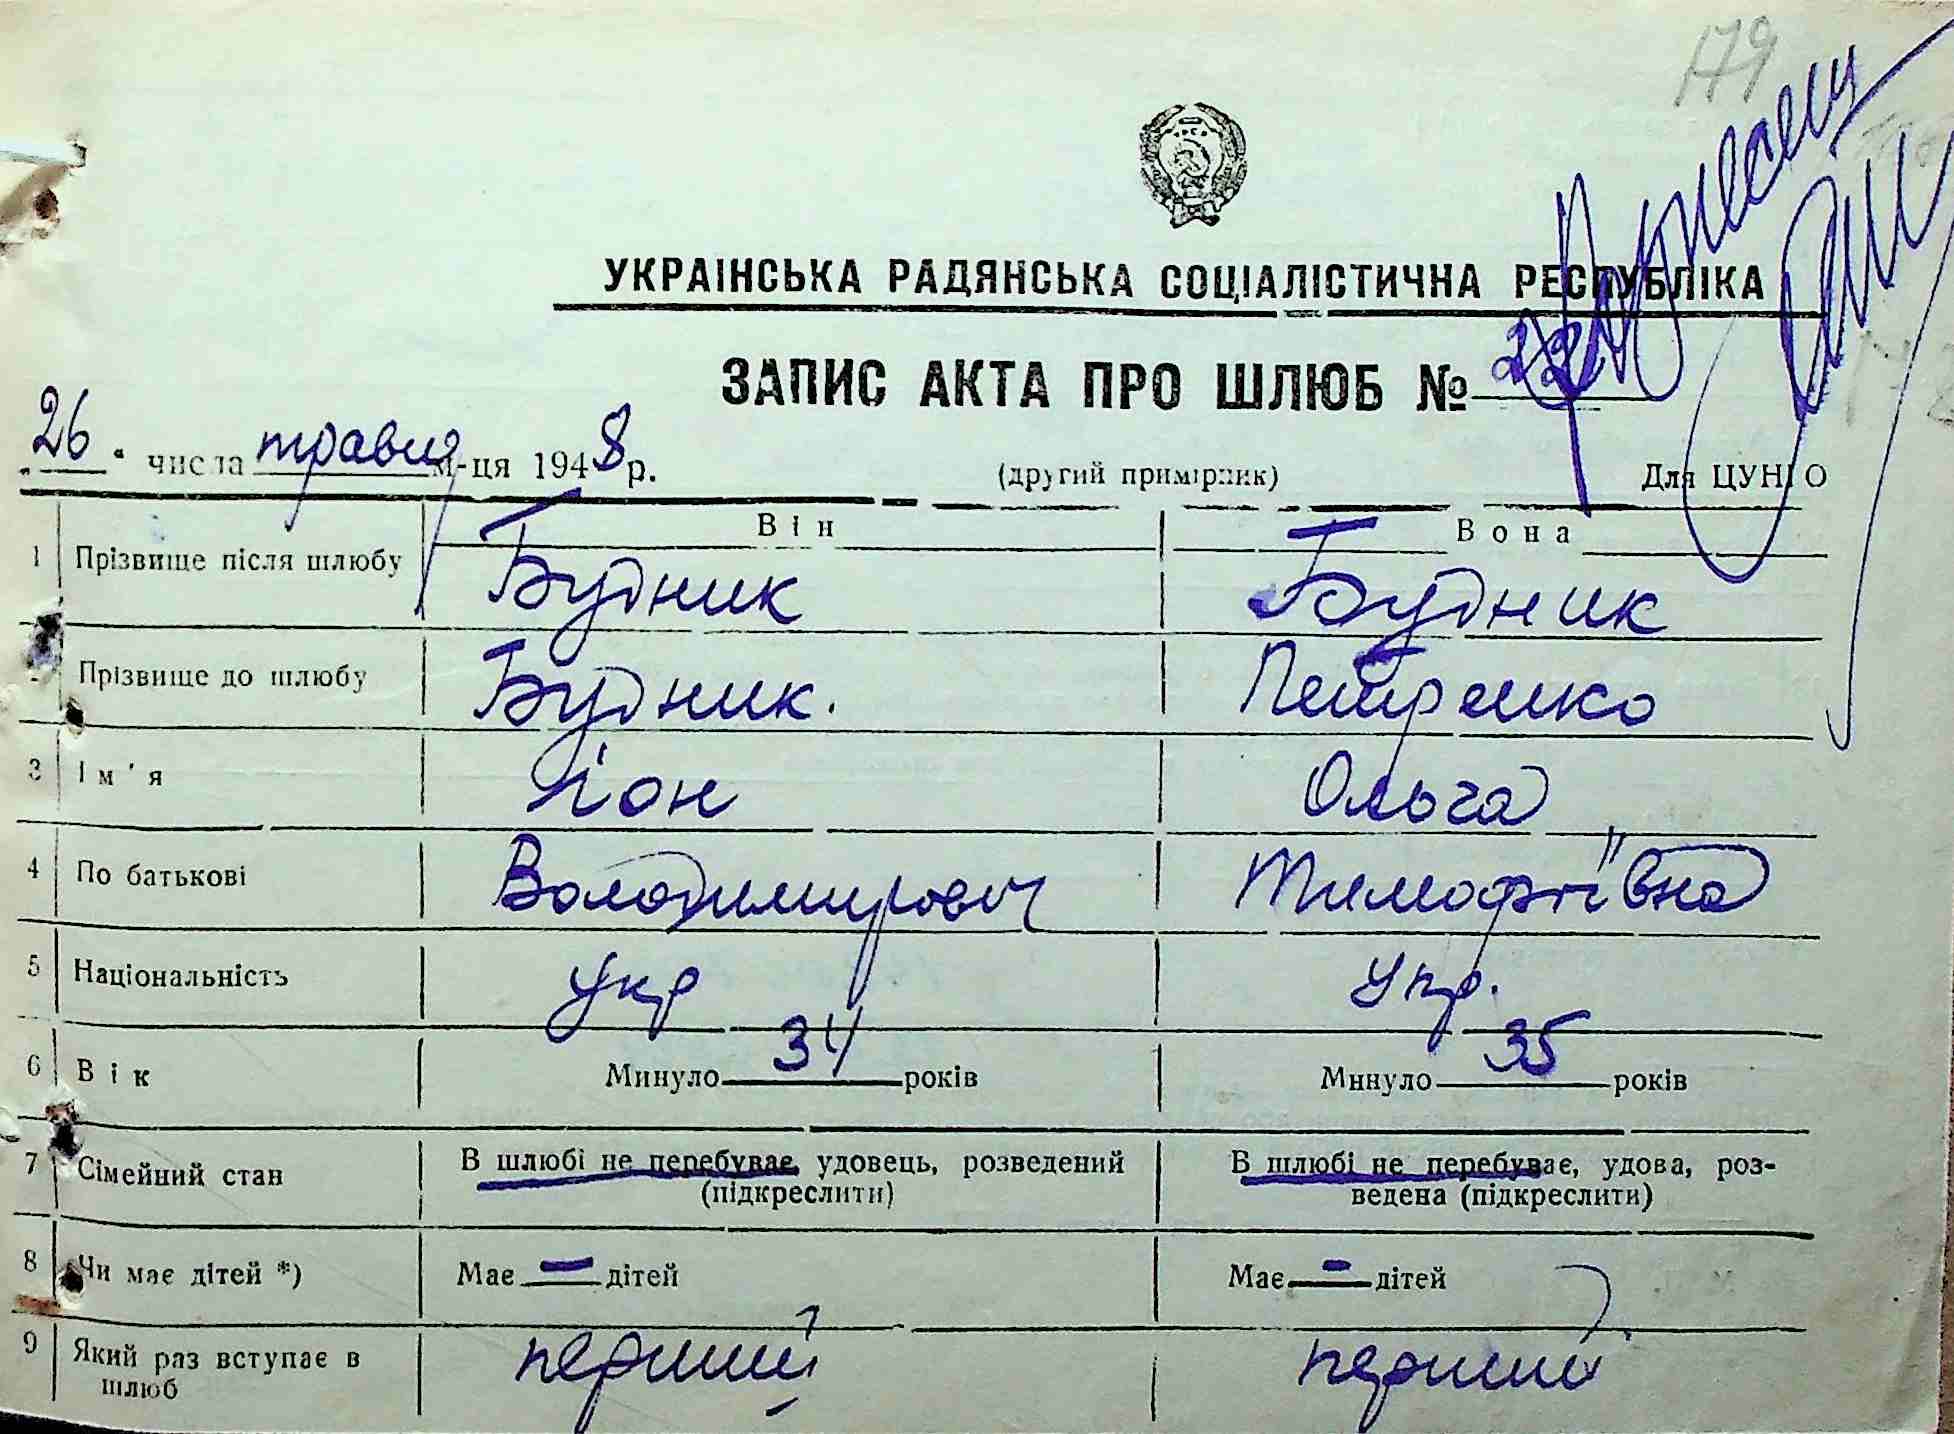 179
УКРАІНСЬКА РАДЯНСЬКА СОЦІАЛІСТИЧНА РЕСПУБЛІКА
ЗАПИС АКТА ПРО ШЛЮБ №
„26" числа травня м-ця 1948 р. (другий примірник) Для ЦУНГО
Він Вона
1 Прізвище після шлюбу Будник Будник
Прізвище до шлюбу Будник. Петренко
3 Ім'я Іон Ольга
4 По батькові Володимирович Тимофіївна
5 Національність укр укр.
6 Вік Минуло 34 років Минуло 35 років
7 Сімейний стан В шлюбі не перебуває, удовець, розведений (підкреслити) В шлюбі не перебуває, удова, роз-
ведена (підкреслити)
8 Чи має дітей *) Має — дітей Має - дітей
9 Який раз вступає в шлюб перший перший